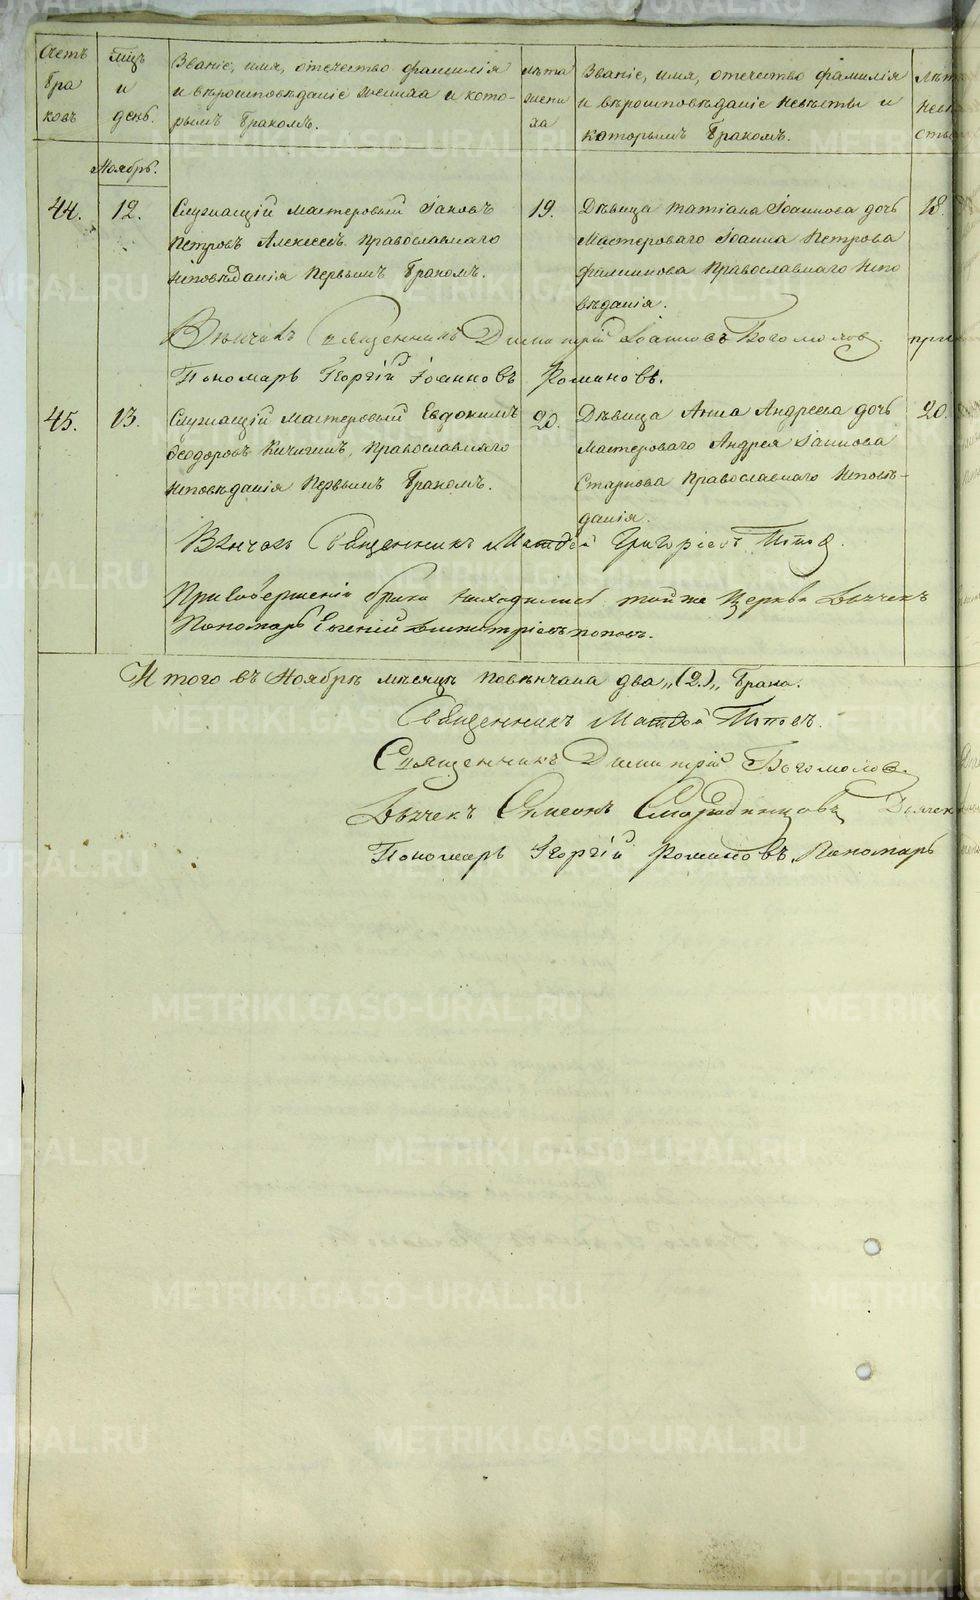 Счетъ браковъ
Мцъ и день.
Званіе, имя, отечество фамилія
и вѣроисповѣданіе жениха и кото-
рымъ бракомъ.
лѣта жениха
Званіе, имя, отечество фамилія
и вѣроисповѣданіе невѣсты и
которымъ бракомъ.
Ноябрь.
44. 12.
Служащій мастеровый Іаковъ
Петровъ Алексеевъ Православнаго
исповѣданія первымъ бракомъ.
19.
Дѣвица Татіана Іоаннова дочь
Мастероваго Іоанна Петрова
Филиппова Православнаго испо
вѣданія.
18.
Вѣнчалъ Священникъ Димитрій Іоанновъ Богомоловъ.
Пономарь Георгій Іоанновъ Романовъ.
45. 13.
Служащій мастеровый Евдокимъ
Ѳеодоровъ Кичигинъ, Православнаго
исповѣданія первымъ бракомъ.
20.
Дѣвица Анна Андреева дочь
Мастероваго Андрея Іаннова
Старкова Православнаго исповѣ-
данія.
20.
Вѣнчалъ Священникъ Матвей Григоріевъ Поповъ.
При Совершеніи брака находились той же Церкви Дьячекъ
Пономарь Евгеній Димитріевъ Поповъ.
Итого въ Ноябрѣ мѣсяцѣ повѣнчана два „(2.)„ брака.
Священникъ Матвей Поповъ.
Священникъ Димитрій Богомоловъ.
Дьячекъ Симеонъ Смородинцовъ Дьячек
Пономарь Георгій Романовъ. Пономарь
METRIKI.GASO-URAL.RU